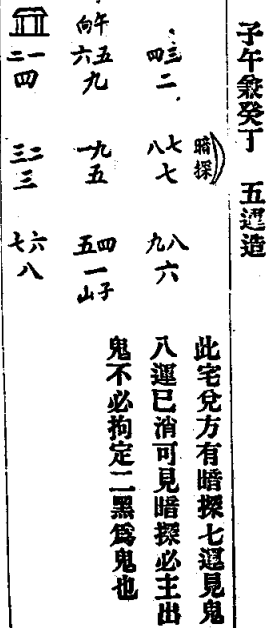 子午兼癸丁 五運造
午向
二一 六五 四三
四 九 二
三二 一九 八七 暗探
三 五 七
七六 五四 九八
八 一 六
子山
此宅兌方有暗探七運見鬼
八運已消可見暗探必主出
鬼不必拘定二黑爲鬼也